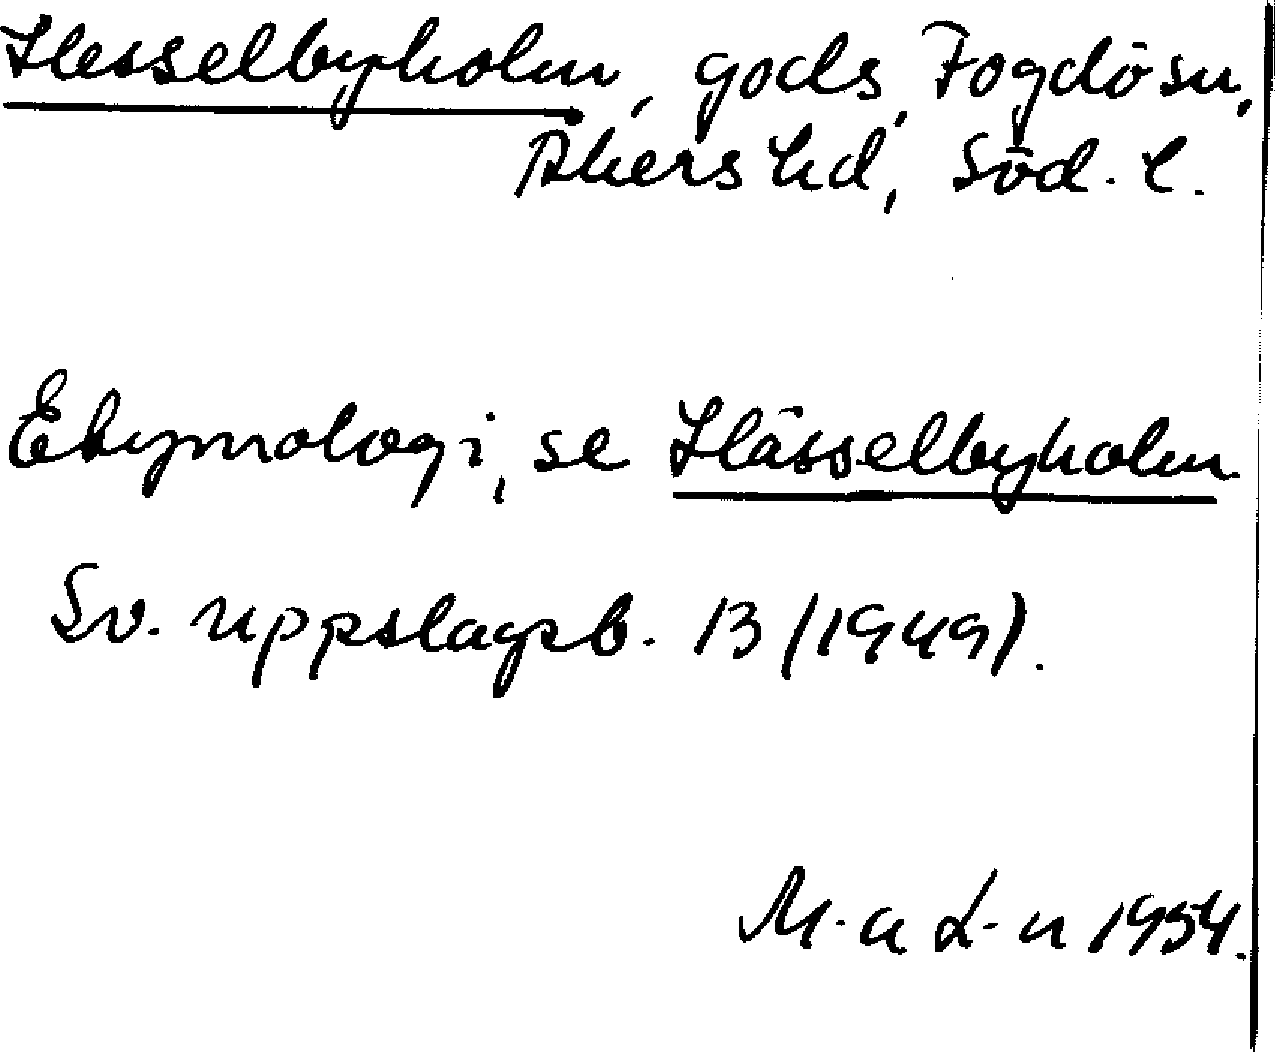 Hesselbyholm, gods, Fogdö sn,
Åkers hd, Söd. l.
Etymologi, se Hässelbyholm
Sv. uppslagsb. 13 (1949).
M-a L-n 1954.